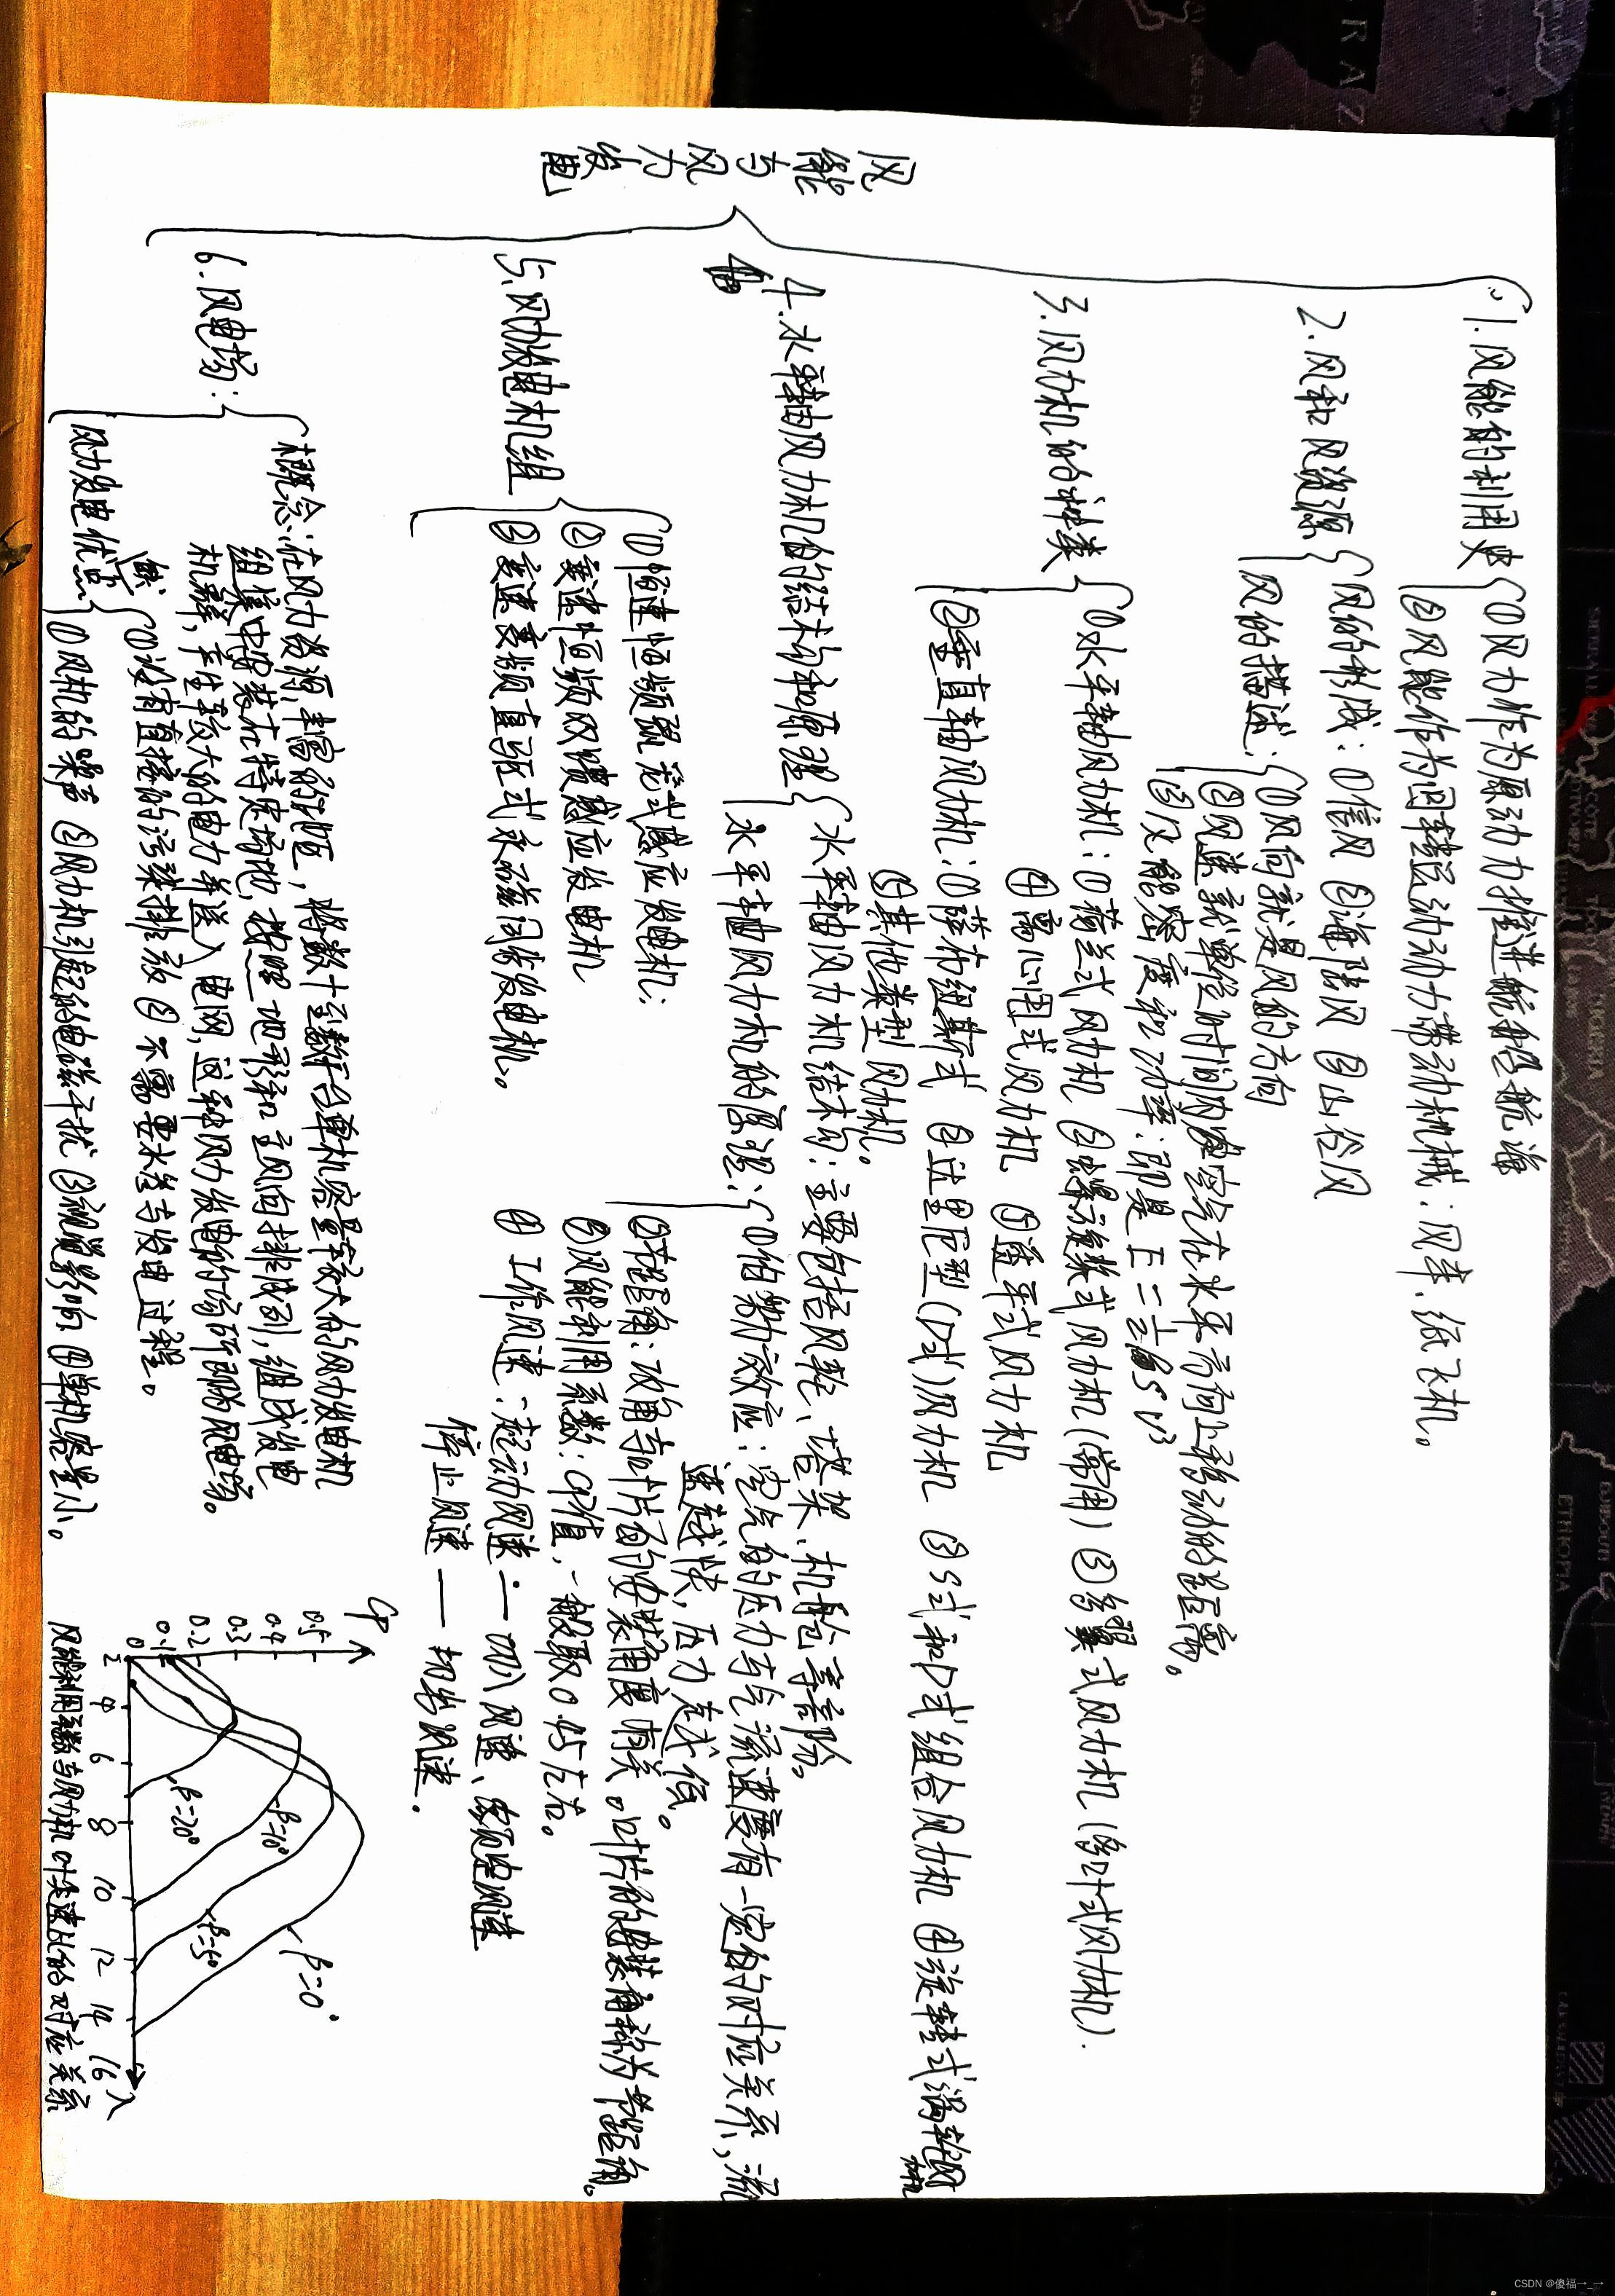 风能与风力发电
1.风能的利用史
①风力作为原动力推进船舶航海
②风能作为回转运动动力带动机械:风车、纸飞机。
2.风和风资源
风的形成:①信风 ②海陆风 ③山谷风
风的描述:
①风向就是风的方向
②风速就单位时间内空气在水平方向上移动的距离。
③风能密度和功率:即是E=
3.风力机的种类
①水平轴风力机:①荷兰式风力机 ②螺旋桨式风力机(常用) ③多翼式风力机(多叶式风力机).
④离心甩式风力机 ⑤
②垂直轴风力机:①萨布纽斯式 ②达里厄型(D式)风力机 ③S式和D式组合风力机 ④旋转式涡轮风力机
⑤其他类型风力机。
4.水平轴风力机的结构和原理
水平轴风力机结构:主要包括风轮、塔架、机舱等部份。
水平轴风力机的原理:
①伯努力效应:空气的压力与气流速度有一定的对应关系,流
速越快,压力越低。
②节距角:攻角与叶片的安装角度有关。叶片的安装角称为节距角。
③风能利用系数:CP值,一般取0.45左右。
④工作风速:起动风速—切入风速、额定风速
停止风速——切出风速.
5.风力发电机组
①恒速恒频鼠笼式感应发电机:
②变速恒频双馈感应发电机
③变速变频直驱式永磁同步发电机。
6.风电场:
概念:在风力资源丰富的地区,将数十至数千台单机容量较大的风力发电机
组集中安装在特定场地,按照地形和主风向排成阵列,组成发电
机群,产生较大的电力并送入电网,这种风力发电的场所即风电场。
风力发电优
缺点
①没有直接的污染排放 ②不需要水参与发电过程。
①风机的噪音 ②风力机引起的电磁干扰 ③视觉影响 ④单机容量小。
Cp
0.5
0.4
0.3
0.2
0.1
0
2 4 6 8 10 12 14 16 λ
β=0°
β=5°
β=10°
β=20°
风能利用系数与风力机叶尖速比的对应关系
CSDN @傻福一_一